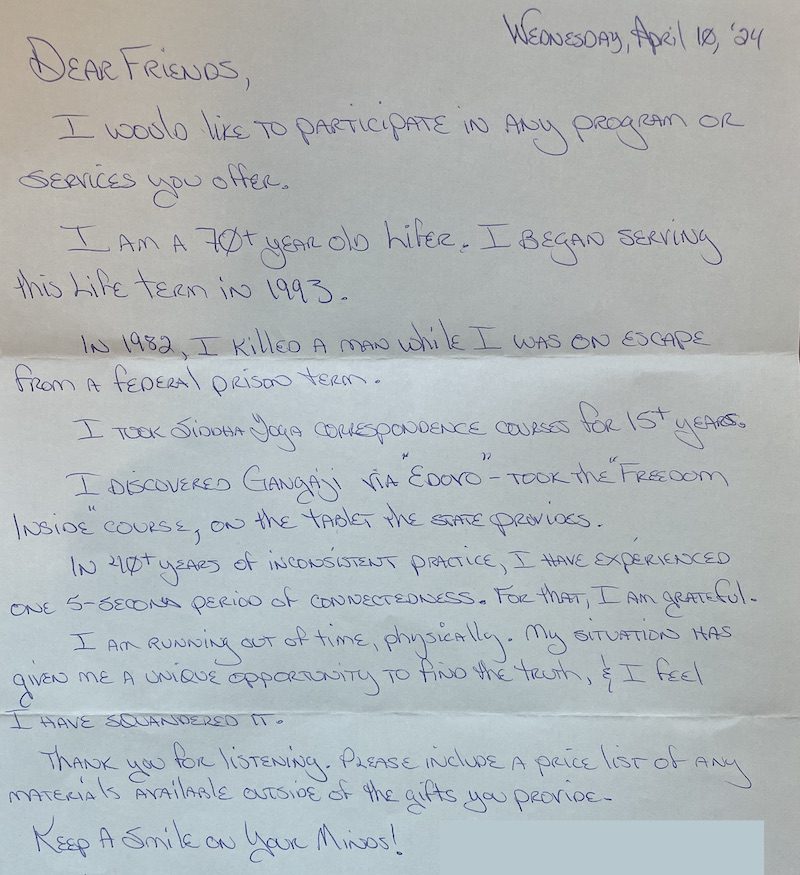 Wednesday, April 10, '24
Dear Friends,
I would like to participate in any program or
services you offer.
I am a 70+ year old Lifer. I began serving
this Life term in 1993.
In 1982, I killed a man while I was on escape
from a federal prison term.
I took Siddha Yoga correspondence courses for 15+ years.
I discovered Gangaji via "Edovo" – took the "Freedom
Inside" course, on the tablet the state provides.
In 40+ years of inconsistent practice, I have experienced
one 5-second period of connectedness. For that, I am grateful.
I am running out of time, physically. My situation has
given me a unique opportunity to find the truth, & I feel
I have squandered it.
Thank you for listening. Please include a price list of any
materials available outside of the gifts you provide.
Keep A Smile on Your Minds!